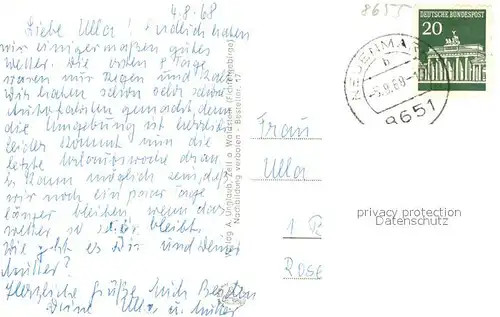 4.8.68
8655
Liebe Ulla! Endlich haben
wir einigermaßen gutes
Wetter. Die ersten 8 Tage
waren nur Regen und
Wir haben schon sehr schöne
Autofahrten gemacht, denn
die Umgebung ist herrlich
leider kommt nun die
letzte Urlaubswoche dran
Es kann möglich sein, daß
wir noch ein paar Tage
länger bleiben wenn das
Wetter so schön bleibt.
Wie geht es Dir und Deiner
Mutter?
Herzliche Grüße Dich Besten
Deine Ulla u. Mutter
Verlag A. Unglaub, Zell a. Waldstein (Fichtelgebirge)
Nachbildung verboten - Bestellnr. 17
DEUTSCHE BUNDESPOST
20
NEUENMARKT
b
-5.8.68-
8651
Frau
Ulla
1
Rose
privacy protection
Datenschutz